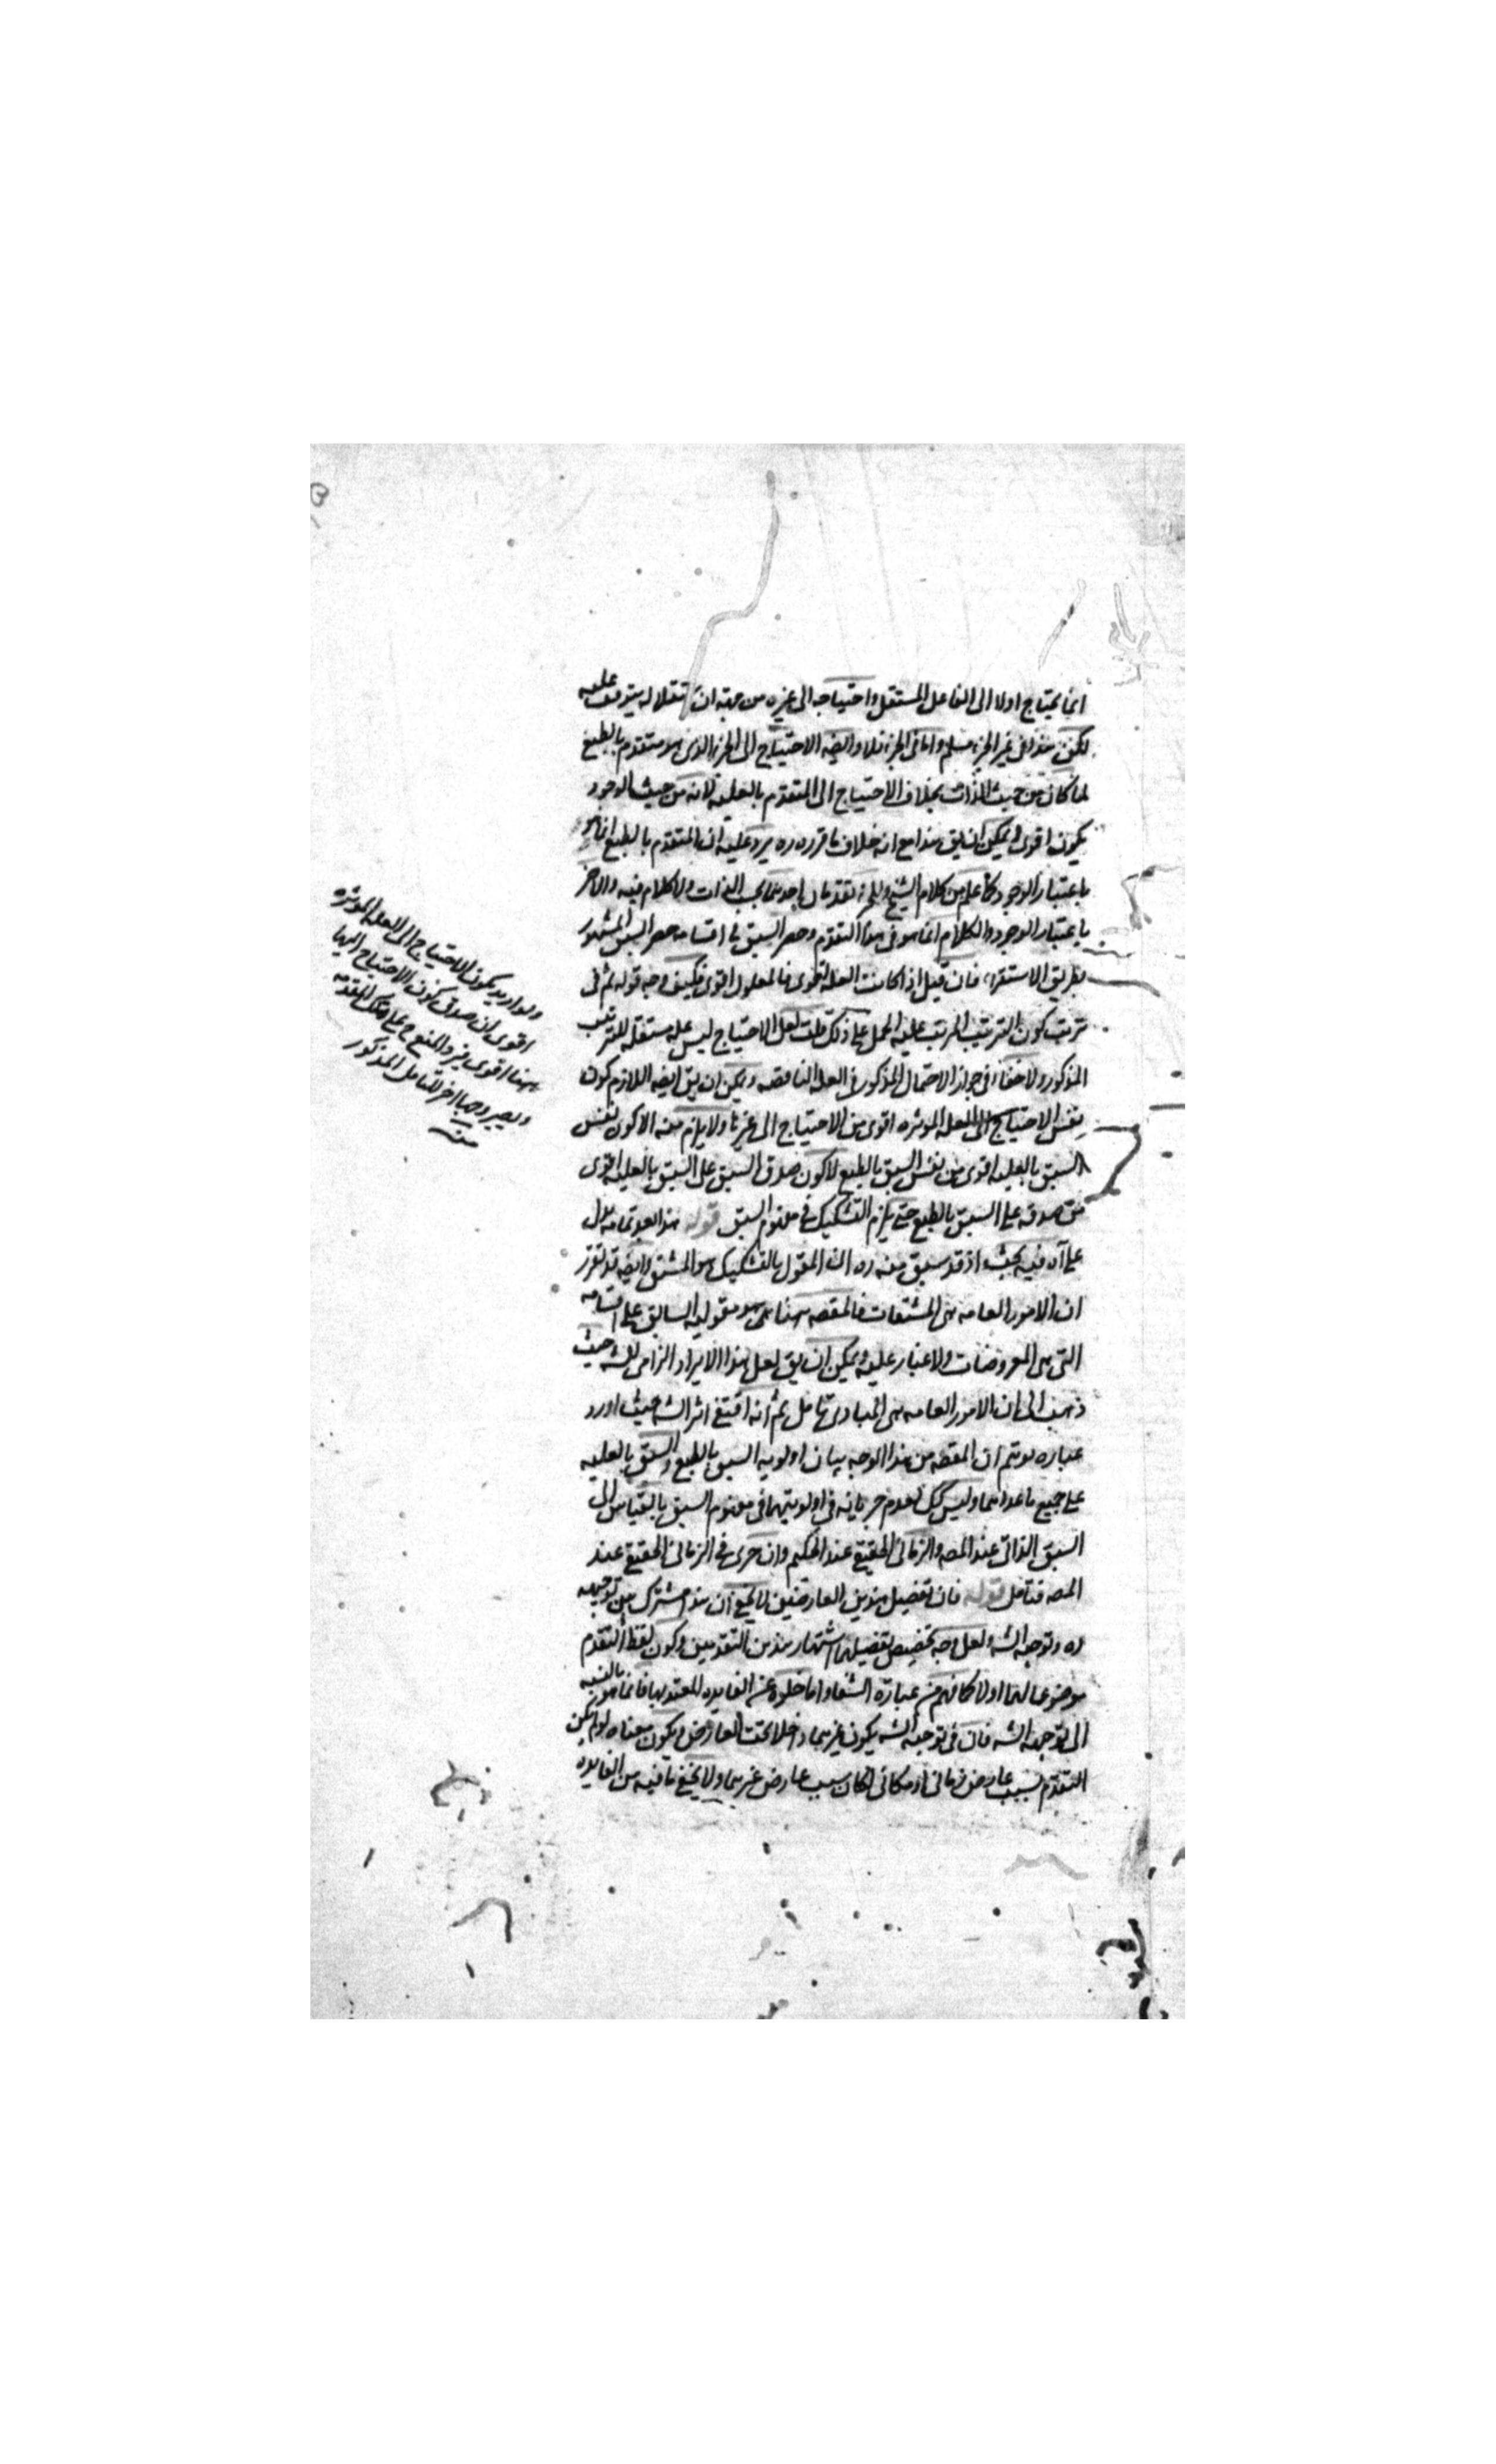 انما يحتاج اولا الى الفاعل المستقل واحتياجه الى غيره من جهة ان استقلاله يتوقف عليه
لكن هذا فى غير الجزء مسلم واما فى الجزء فلا وايضه الاحتياج الى الجزء الذى هو متقدم بالطبع
لما كان من حيث الذات بخلاف الاحتياج الى المتقدم بالعليه لانه من حيث الوجود
يكون اقوى ويمكن ان يق هذا مع انه خلاف ما قرره ره يرد عليه ان المتقدم بالطبع انما هو
باعتبار الوجود كما علم من كلام الشيخ وللجزء تقدمان احدهما بحسب الذات ولا كلام فيه والاخر
باعتبار الوجود والكلام انما هو فى هذا التقدم وحصر السبق فى اقسامه حصر السبق المشهور
بطريق الاستقراء فان قيل اذا كانت العله اقوى فالمعلول اقوى فكيف وجه قوله ثم فى
ترتب كون الترتيب المرتب عليه المحمل على ذلك قلت لعل الاحتياج ليس عله مستقله للترتيب
المذكور ولا خفاء فى جواز الاحتمال المذكور فى العله الناقصه ويمكن ان يق ايضه اللازم كون
نفس الاحتياج الى العله الموثره اقوى من الاحتياج الى غيرها ولا يلزم منه الا كون نفس
السبق بالعليه اقوى من نفس السبق بالطبع لا كون صدق السبق على السبق بالعليه اقوى
من صدقه على السبق بالطبع حتى يلزم التشكيك فى مفهوم السبق قوله هذا لعد تمامه يدل
على آه فيه بحث اذ قد سبق منه ره ان المقول بالتشكيك هو المشتق وايضه قد تقرر
ان الامور العامه هى المشتقات فالمقصه ههنا هو مقوليه السابق على اقسامه
التى هى المعروضات ولا غبار عليه ويمكن ان يق لعل هذا الايراد الزامى للشه حيث
ذهب الى ان الامور العامه هى المبادى تامل ثم انه اقتفى اثر الشه حيث اورد
عباره توهم ان المقصه من هذا الوجه بيان اولويه السبق بالطبع والسبق بالعليه
على جميع ما عداهما وليس كك لعدم جريانه فى اولويتهما فى مفهوم السبق بالقياس الى
السبق الذاتى عند المصه والزمانى الحقيقى عند الحكيم وان جرى فى الزمانى الحقيقى عند
المصه فتامل قوله فان تفصيل هذين العارضين لا يخفى ان هذا مشترك بين توجيهه
ره وتوجيه الشه ولعل وجه تخصيص تفصيلهما اشتهار هذين التقدمين وكون لفظ التقدم
موضوعا لهما اولا كما فهم من عبارة الشفا واما خلوه عن الفايده المعتد بها فانما هو بالنسبه
الى توجيه الشه فان فى توجيه الشه يكون غيرهما داخلا تحت العارض ويكون معناه لو لم يكن
التقدم بسبب عارض زمانى او مكانى لكان بسبب عارض غيرهما ولا يخفى ما فيه من الفايده
ولو اريد بكون الاحتياج الى العله الموثره
اقوى ان صدق كون الاحتياج اليها
ههنا اقوى يرد المنع على تلك المقدمه
ويصير وجها اخر للتامل المذكور
منه